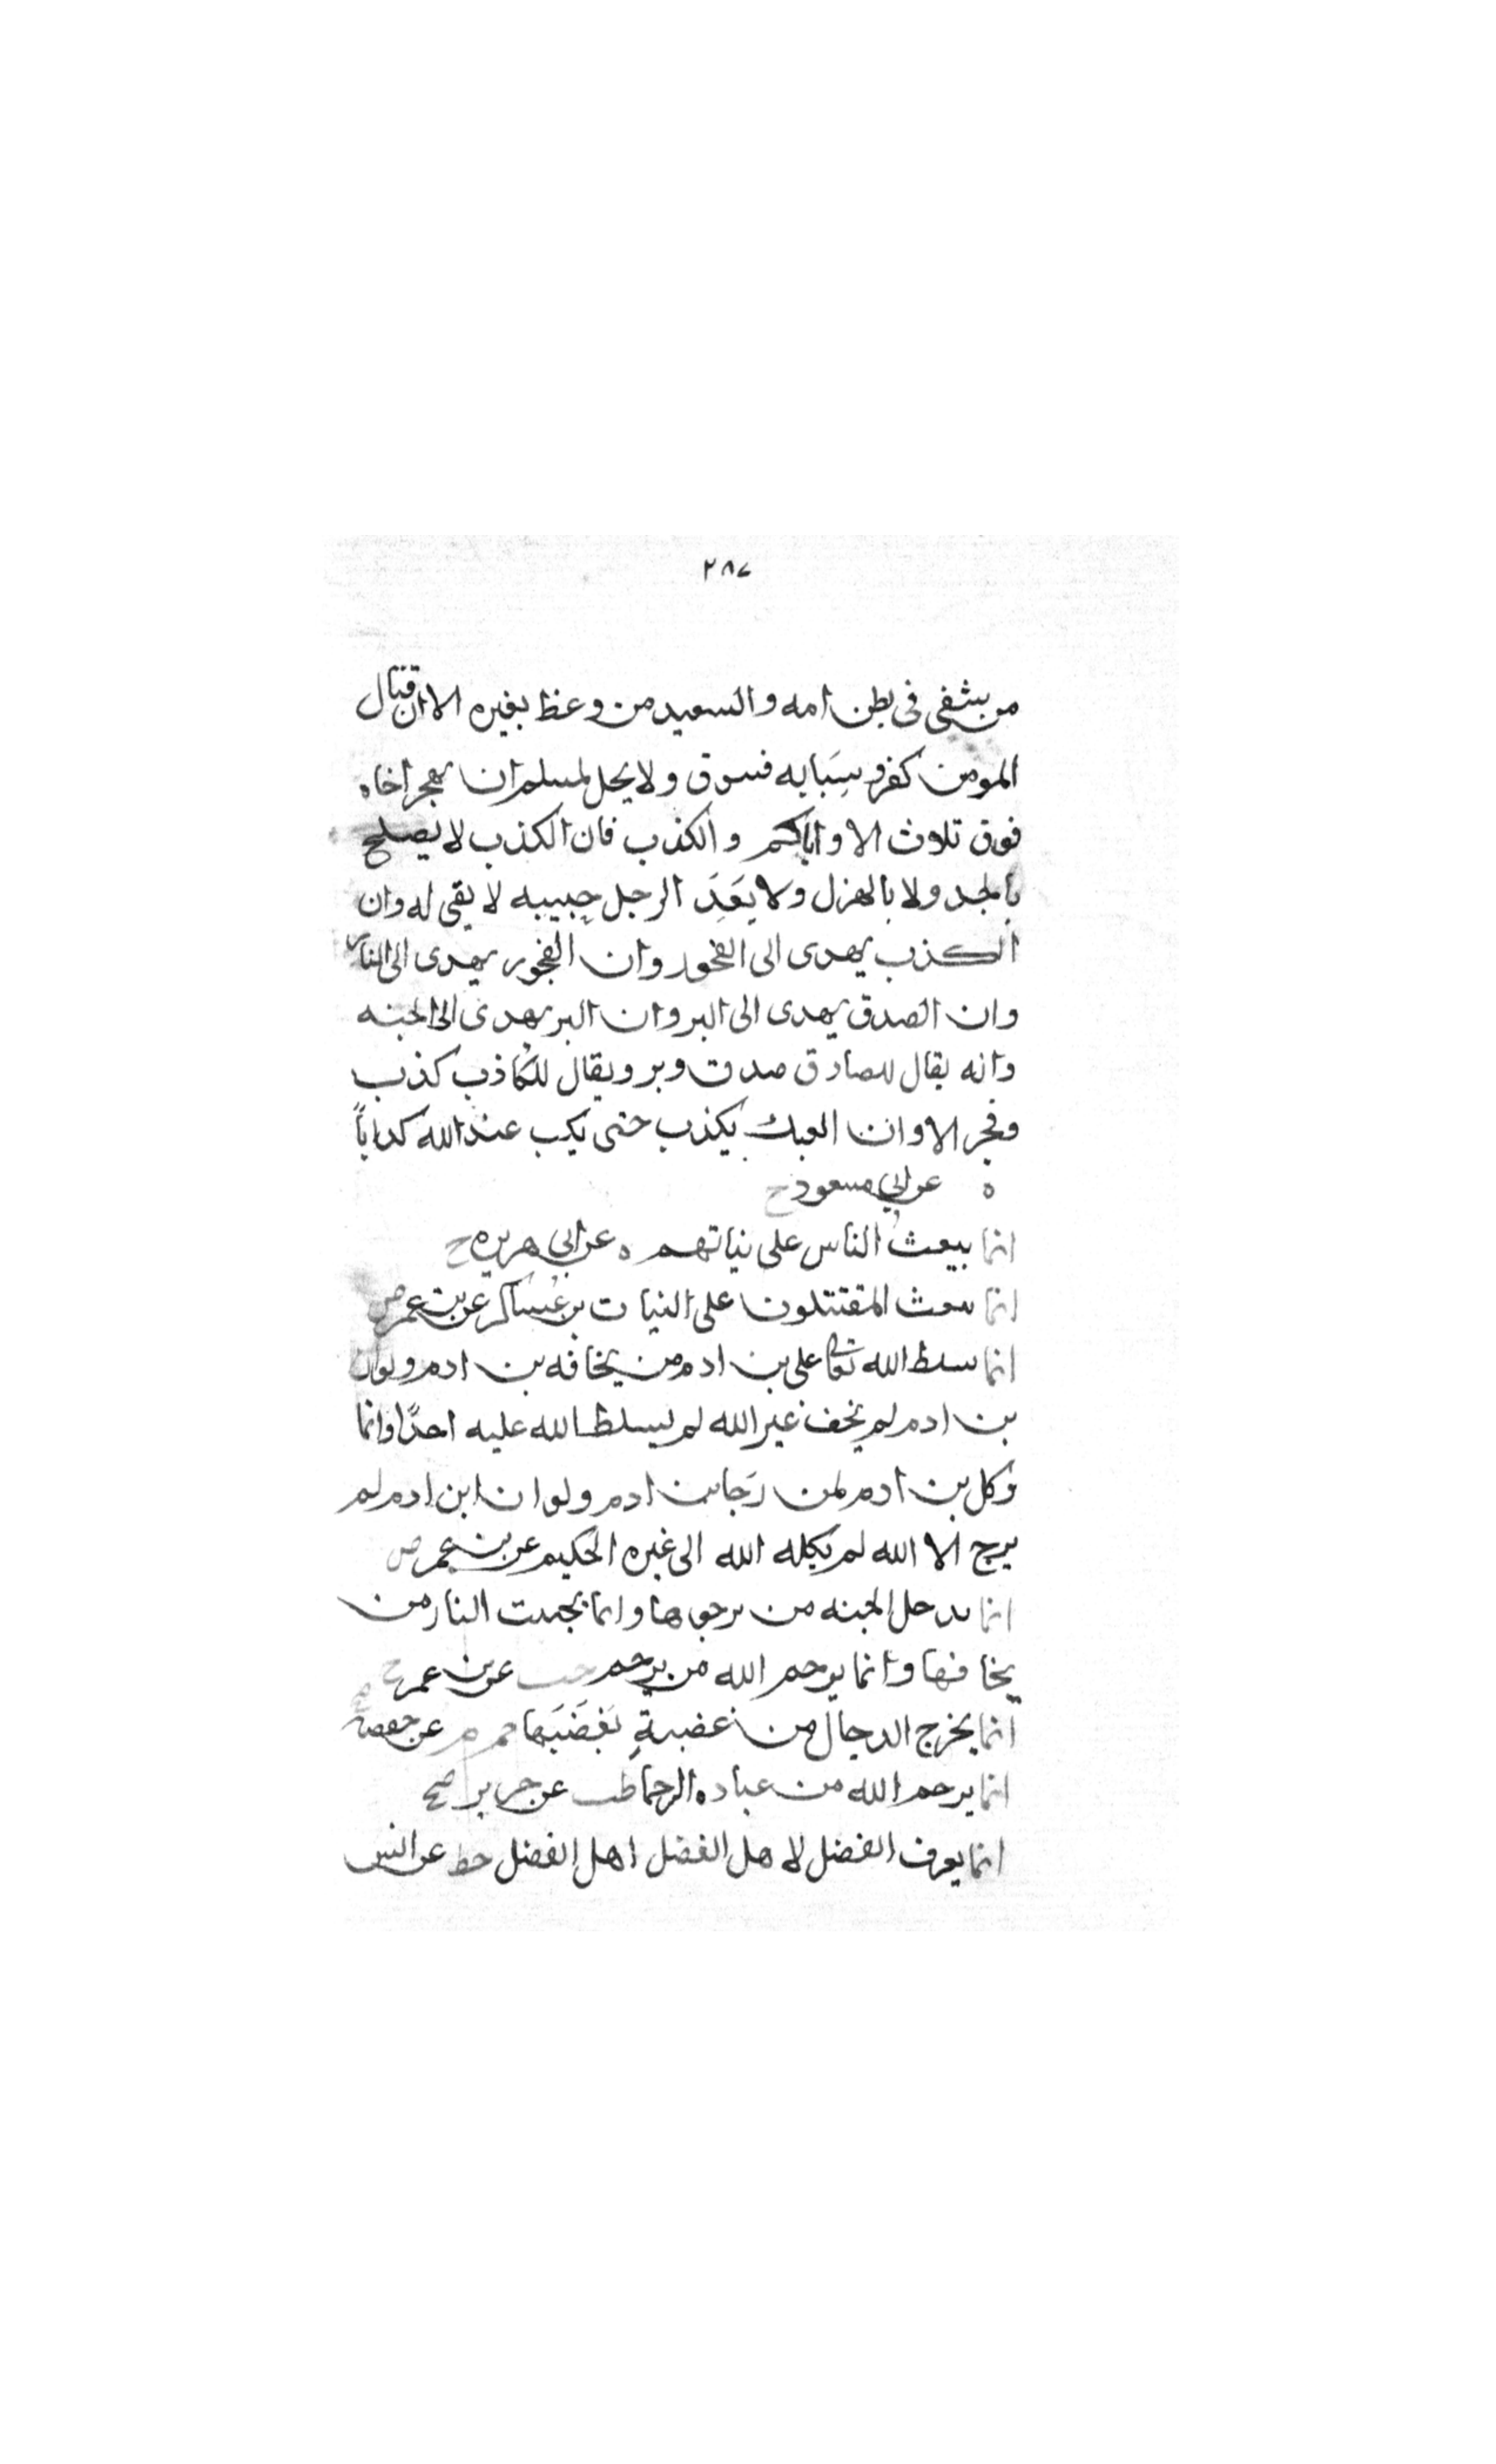 ٢٨٧
من يشقى فى بطن امه والسعيد من وعظ بغيره الا ان قتال
المومن كفر وسبابه فسوق ولا يحل لمسلم ان يهجر اخاه
فوق ثلاث الا واياكم والكذب فان الكذب لا يصلح
بالجد ولا بالهزل ولا يَعِدَ الرجل صبيه لا يفى له وان
الكذب يهدى الى الفجور وان الفجور يهدى الى النار
وان الصدق يهدى الى البر وان البر يهدى الى الجنه
وانه يقال للصادق صدق وبر ويقال للكاذب كذب
وفجر الا وان العبد يكذب حتى يكتب عند الله كذاباً
ه عن ابي مسعود ح
انما يبعث الناس على نياتهم ه عن ابى هريره ح
انما يبعث المقتتلون على النيات بن عساكر عن بن عمر ض
انما سلط الله تعالى على بن ادم من يخافه بن ادم ولو ان
بن ادم لم يخف غير الله لم يسلط الله عليه احدًا وانما
وكل بن ادم لمن رَجا بن ادم ولو ان ابن ادم لم
يرج الا الله لم يكله الله الى غيره الحكيم عن بن عمر ض
انما يدخل الجنه من يرجوها وانما يجنب النار من
يخافها وانما يرحم الله من يرحم هب عن بن عمر ح
انما يخرج الدجال من غضبةٍ يَغضَبَها حم م عن حفصة
انما يرحم الله من عباده الرحما طب عن جرير صح
انما يعرف الفضل لاهل الفضل اهل الفضل خط عن انس